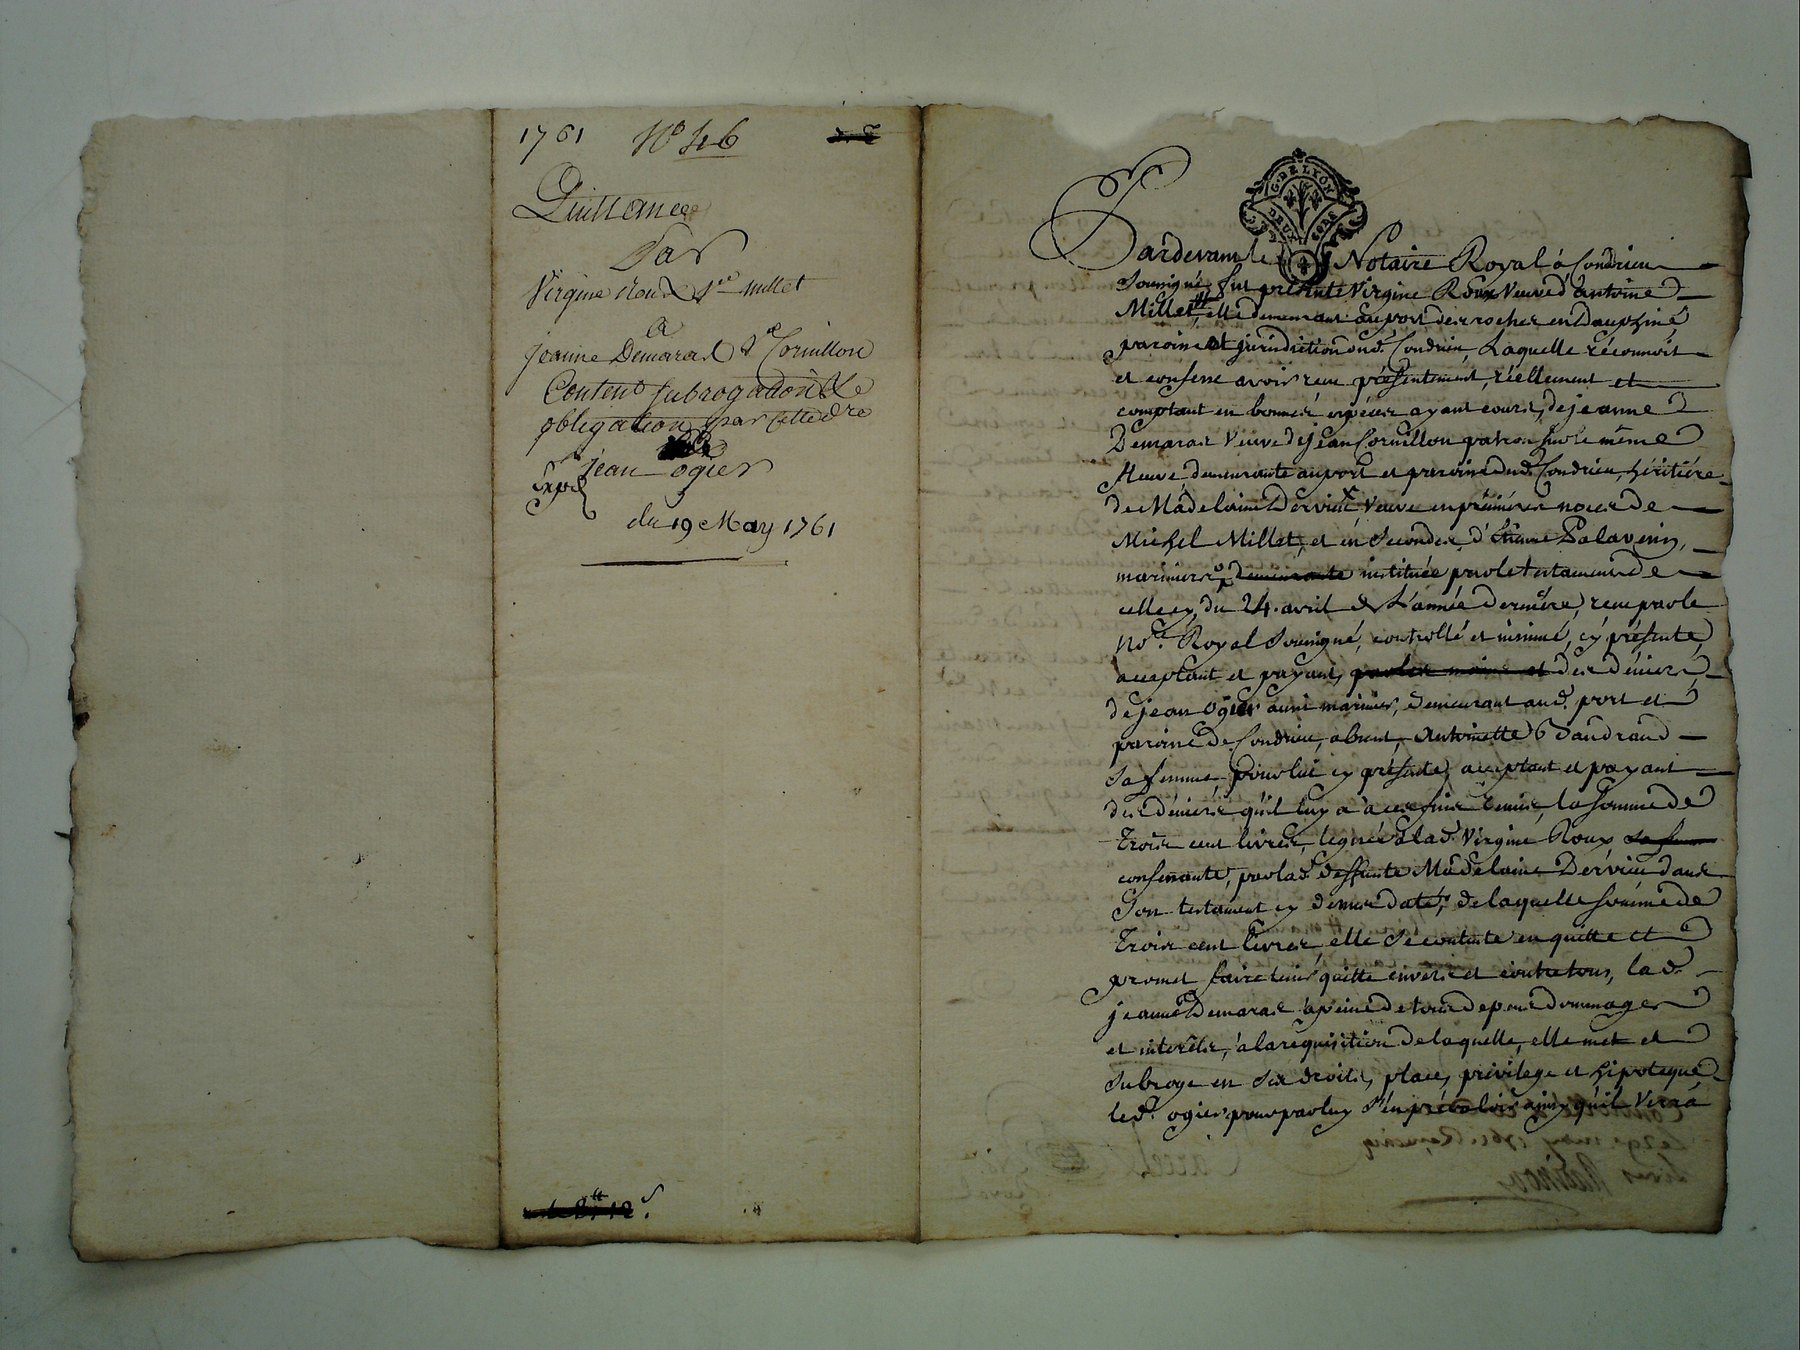 1761 N° 46
Quittance
Par
Virgine Roux Vve Millet
a
Jeanne Demaras Ve Cornillon
Conten.t subrogation &
obligation par cette dre
a
jean ogier
Expé
du 19 May 1761
G. DE LYON
DEUX SOLS
Pardevant le Notaire Royal à Condrieu
soussigné, fut présente Virgine Roux Veuve d'antoine
Millet, elle demeurant au port des roches en Dauphiné,
paroisse et jurisdiction dud. Condrieu, Laquelle réconnoit
et confesse avoir reçu présentement, réellement et
comptant en bonnes espéces ayant cours, de jeanne
Demaras Veuve de jean Cornillon patron sur le même
fleuve demeurante au port et paroisse dud. Condrieu, héritiére
de Madelaine Dervieux Veuve en prémiéres noces de
Michel Millet, et en secondes d'Etienne Palavenin,
mariniers, demeurante instituée par le testament de
celle cy, du 24. avril de L'année derniére, reçu par le
No.re Royal soussigné, controllé et insinué, cy présente,
acceptant et payant, par les mains et des déniers
de jean Ogier aussi marinier, demeurant aud. port et
paroisse de Condrieu, absent, Antoinette Vaudrand
sa femme, pour lui cy présente, acceptant et payant
des déniers qu'il luy a à ces fins remis, la somme de
trois cent livres, leguée à lad. Virgine Roux
confessante, par lad. deffunte Madelaine Dérvieu dans
son testament cy dessus daté; de laquelle somme de
trois cent livres, elle se contente en quitte et
promet faire tenir quitte envers et contre tous, lad.
jeanne Demaras à peine de tous depens dommages
et intérêts, à la requisition de laquelle, elle met et
subroge en ses droits, place, privilege et hipoteque
led. ogier pour par luy s'en prévaloir ainsy qu'il verra